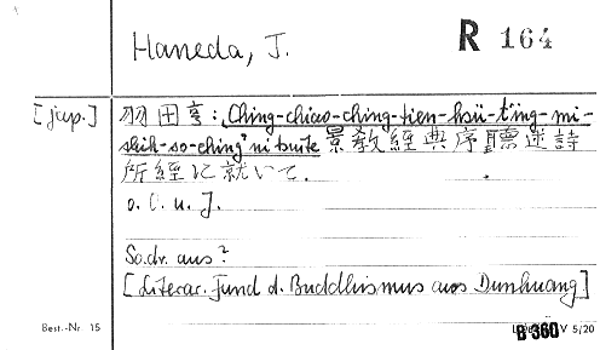 Haneda, J.
R 164
[jap.] 羽田亨: „Ching-chiao-ching-tien-hsü-t'ing-mi-
shih-so-ching" ni tsuite 景教經典序聽迷詩
所經に就いて.
o. O. u. J.
So.dr. aus?
[Literar. Fund d. Buddhismus aus Dunhuang]
Best.-Nr. 15
B 360 V 5/20